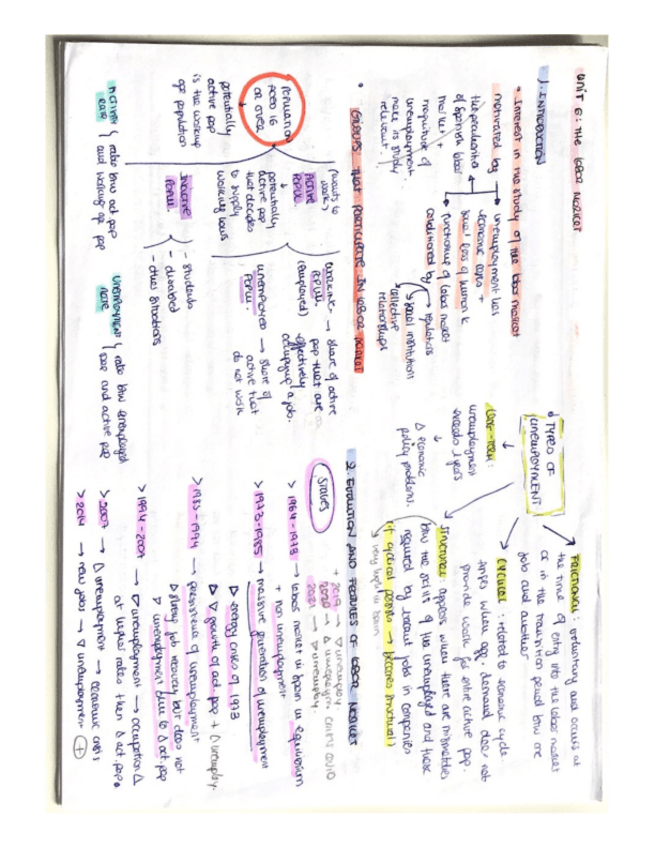 UNIT 6: THE LABOR MARKET
1. INTRODUCTION
• Interest in the study of the labor market
motivated by
the peculiarities
of Spanish labor
market +
magnitude of
unemployment
make is study
relevant.
unemployment has
economic costs +
social loss of human k
functioning of labor market
conditioned by
regulations
social institutions
collective
relationships
• GROUPS THAT PARTICIPATE IN LABOR MARKET
POPULATION
AGED 16
OR OVER
↓
potentially
active pop
is the working
age population
(wants to
work)
ACTIVE
POPUL.
↓
potentially
active pop
that decides
to supply
working hours
WORKING
POPUL.
(employed)
→ share of active
pop that are
effectively
occupying a job.
UNEMPLOYED
POPUL.
→ share of
active that
do not work
INACTIVE
POPUL.
- students
- disabled
- other situations
ACTIVITY
RATE
ratio btw act pop
and working age pop
UNEMPLOYMENT
RATE
ratio btw unemployed
pop and active pop
TYPES OF
UNEMPLOYMENT
FRICTIONAL: voluntary and occurs at
the time of entry into the labor market
or in the transition period btw one
job and another
CYCLICAL: related to economic cycle.
when agg. demand does not
provide work for entire active pop.
STRUCTURAL: appears when there are mismatches
btw the skills of the unemployed and those
required by vacant jobs in companies
(if cyclical persists → becomes structural)
↳ very high in Spain
LONG-TERM:
unemployment
exceeds 1 years
↓
Δ economic
policy problem.
2. EVOLUTION AND FEATURES OF LABOR MARKET
STAGES
+ 2019 → ∇ unemploy.
2020 → Δ unemploym. crisis COVID
2021 → ∇ unemploy.
> 1964-1973 → labor market in Spain in equilibrium
+ no unemployment
> 1973-1985 → massive generation of unemployment
▷ energy crisis of 1973
▷ ∇ growth of act. pop + Δ unemploy.
> 1985-1994 → persistence of unemployment
▷ strong job recovery but does not
∇ unemployment due to Δ act. pop
> 1994-2007 → ∇ unemployment → occupation Δ
at higher rates than Δ act. pop.
> 2007 → Δ unemployment → economic crisis
> 2014 → new jobs → ∇ unemployment (+)